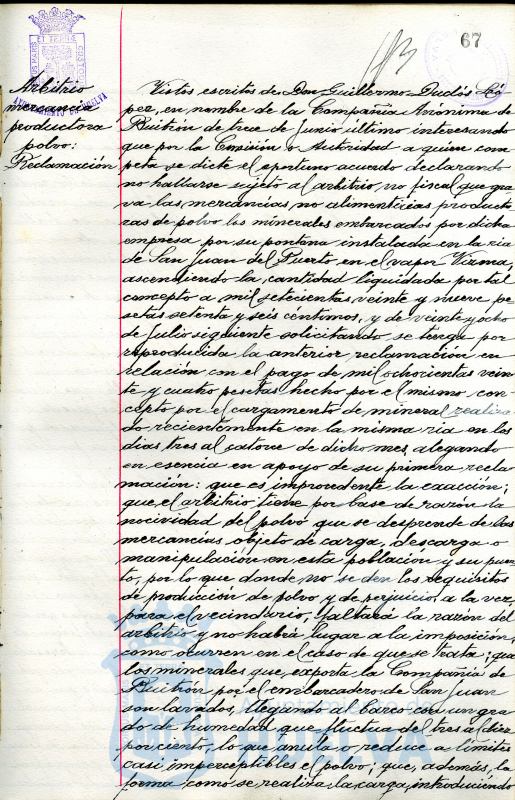 67
Arbitrio
mercancía
productora
polvo:
Reclamación
Vistos escritos de Don Guillermo Duclós Ló-
pez, en nombre de la Compañía Anónima de
Buitrón de trece de Junio último interesando
que por la Comisión o Autoridad a quien com-
peta se dicte el oportuno acuerdo declarando
no hallarse sujeto al arbitrio no fiscal que gra-
va las mercancías no alimenticias producto-
ras de polvo los minerales embarcados por dicha
empresa por su pontana instalada en la ria
de San Juan del Puerto en el vapor
ascendiendo la cantidad liquidada por tal
concepto a mil setecientas veinte y nueve pe-
setas setenta y seis céntimos, y de veinte y ocho
de Julio siguiente solicitando se tenga por
reproducida la anterior reclamación en
relación con el pago de mil ochocientas vein-
te y cuatro pesetas hecho por el mismo con-
cepto por el cargamento de mineral realiza-
do recientemente en la misma ria en los
dias tres al catorce de dicho mes, alegando
en esencia en apoyo de su primera recla-
mación: que es improcedente la exacción;
que el arbitrio tiene por base de razón la
nocividad del polvo que se desprende de las
mercancías objeto de carga, descarga o
manipulación en esta población y su puer-
to, por lo que donde no se den los requisitos
de producción de polvo y de perjuicio, a la vez
para el vecindario, faltará la razón del
arbitrio y no habrá lugar a la imposición,
como ocurren en el caso de que se trata; que
los minerales que exporta la Compañía de
Buitrón por el embarcadero de San Juan
son lavados, llegando al barco con un gra-
do de humedad que fluctua del tres al diez
por ciento, lo que anula o reduce a límites
casi imperceptibles el polvo; que, además, la
forma como se realiza la carga, introduciendo